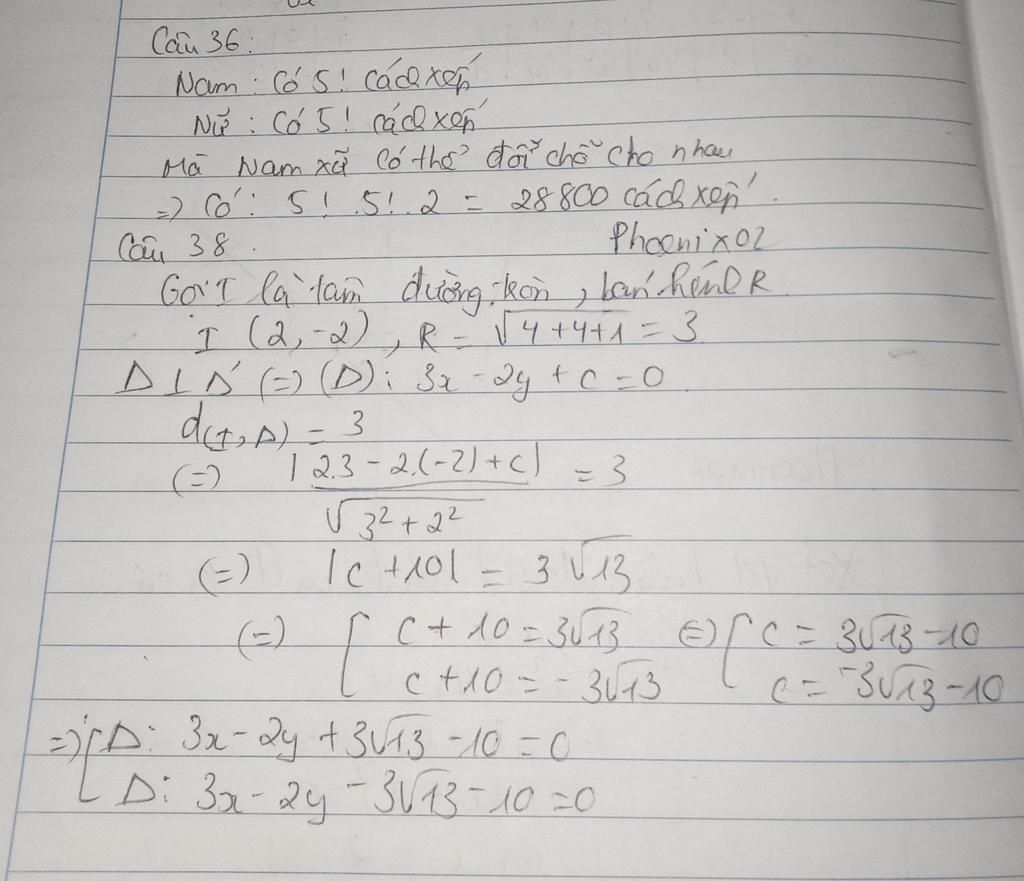 Câu 36:
Nam : Có 5! cách xếp
Nữ : Có 5! cách xếp
Mà Nam xữ có thể đổi chỗ cho nhau
=> Có: 5! . 5! . 2 = 28800 cách xếp.
Câu 38. Phoenix02
Gọi I là tâm đường tròn, bán kính R
I (2, -2), R = √(4+4+1) = 3
Δ ⊥ Δ' (=) (Δ): 3x - 2y + c = 0
d(I, Δ) = 3
(=) |2.3 - 2.(-2) + c| / √(3² + 2²) = 3
(=) |c + 10| = 3√13
(=) [ c + 10 = 3√13 (=) [ c = 3√13 - 10
c + 10 = -3√13 c = -3√13 - 10
=> [ Δ: 3x - 2y + 3√13 - 10 = 0
Δ: 3x - 2y - 3√13 - 10 = 0